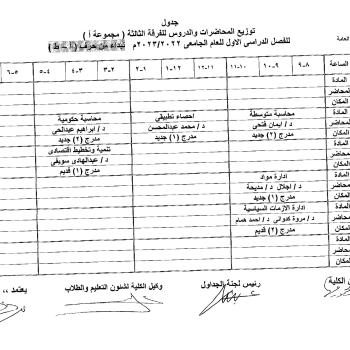 جدول
توزيع المحاضرات والدروس للفرقة الثالثة ( مجموعة أ )
للفصل الدراسى الاول للعام الجامعى ٢٠٢٣/٢٠٢٢م
العامة
الساعة ٩-٨ ١٠-٩ ١١-١٠ ١٢-١١ ١-١٢ ٢-١ ٣-٢ ٤-٣ ٥-٤ ٦-٥
المادة محاسبة متوسطة احصاء تطبيقى محاسبة حكومية
المحاضر د/ ايمان فتحى د/ محمد عبدالمحسن د/ ابراهيم عبدالحى
المكان مدرج (٢) جديد مدرج (١) جديد مدرج (٢) جديد
المادة تنمية وتخطيط اقتصادى
المحاضر د/ عبدالهادى سويفى
المكان مدرج (١) قديم
المادة ادارة مواد
المحاضر د/ اجلال د/ مديحة
المكان مدرج (١) جديد
المادة ادارة الازمات السياسية
المحاضر د/ مروة كدوانى د/ احمد همام
المكان مدرج (٢) قديم
المادة
المحاضر
المكان
الكلية رئيس لجنة الجداول وكيل الكلية لشئون التعليم والطلاب يعتمد ،،